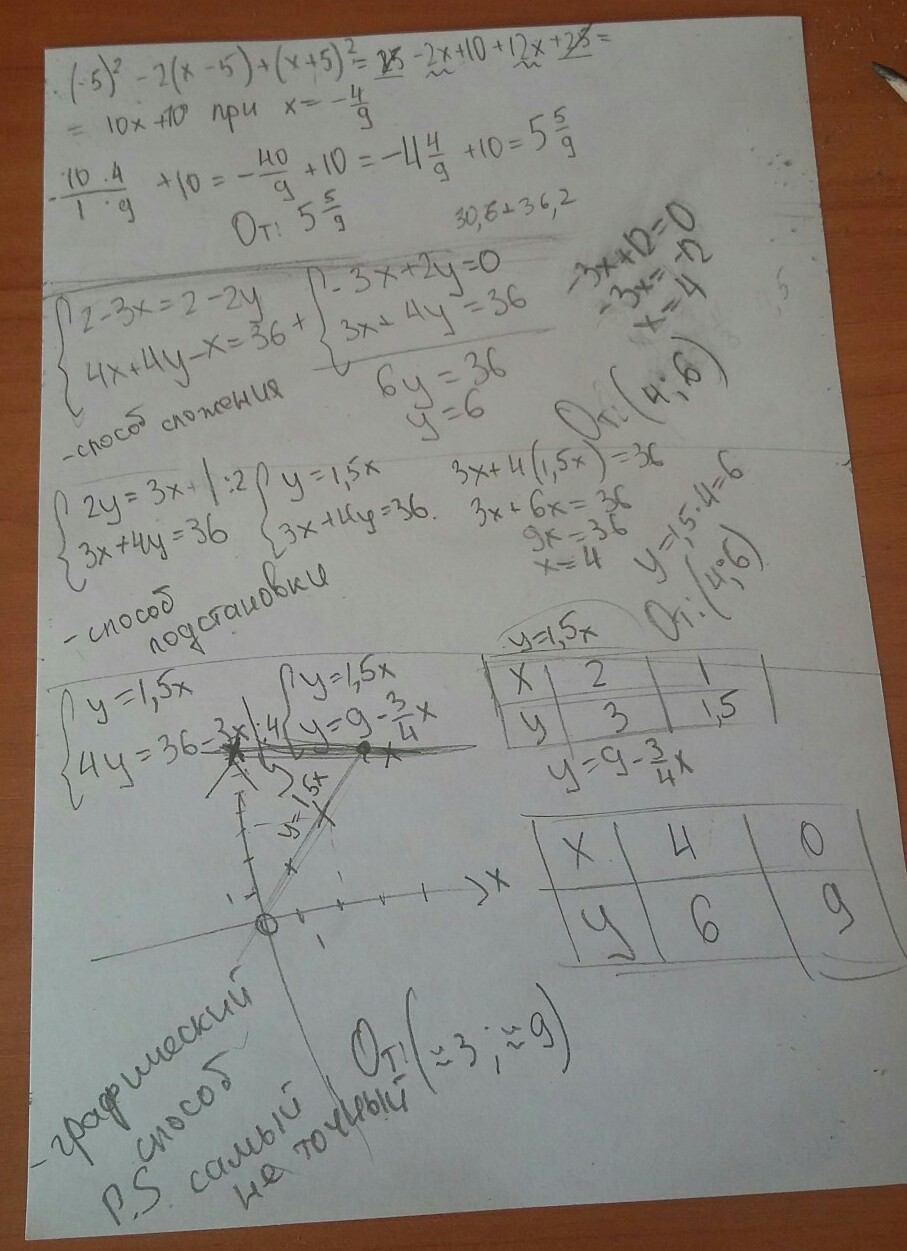 (-5)² - 2(x-5)+(x+5)² = 25 -2x+10+12x+25 =
= 10x+10 при x = -4/9
-10·4/1·9 +10 = -40/9 +10 = -4 4/9 +10 = 5 5/9
От: 5 5/9
30,5+36,2
{2-3x=2-2y
4x+4y-x=36 +
{-3x+2y=0
3x+4y=36
6y=36
y=6
-3x+12=0
-3x=-12
x=4
От: (4;6)
-способ сложения
{2y=3x |:2
3x+4y=36
{y=1,5x
3x+4y=36.
3x+4(1,5x)=36
3x+6x=36
9x=36
x=4
y=1,5·4=6
От: (4;6)
-способ
подстановки
{y=1,5x
4y=36-3x |:4
{y=1,5x
y=9-3/4x
y=1,5x
x 2 1
y 3 1,5
y=9-3/4x
x 4 0
y 6 9
y=1,5x
x
1
1
-графический
способ
От: (≈3; ≈9)
P.S. самый
не точный